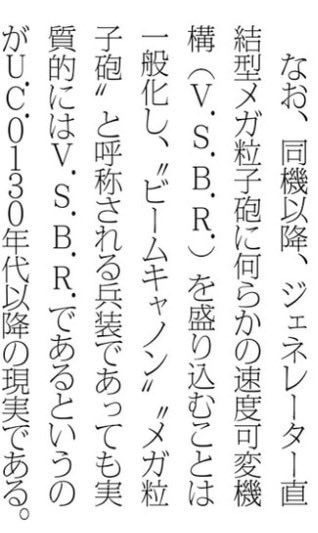 なお、同機以降、ジェネレーター直
結型メガ粒子砲に何らかの速度可変機
構（V.S.B.R.）を盛り込むことは
一般化し、〝ビームキャノン〟〝メガ粒
子砲〟と呼称される兵装であっても実
質的にはV.S.B.R.であるというの
がU.C.0130年代以降の現実である。